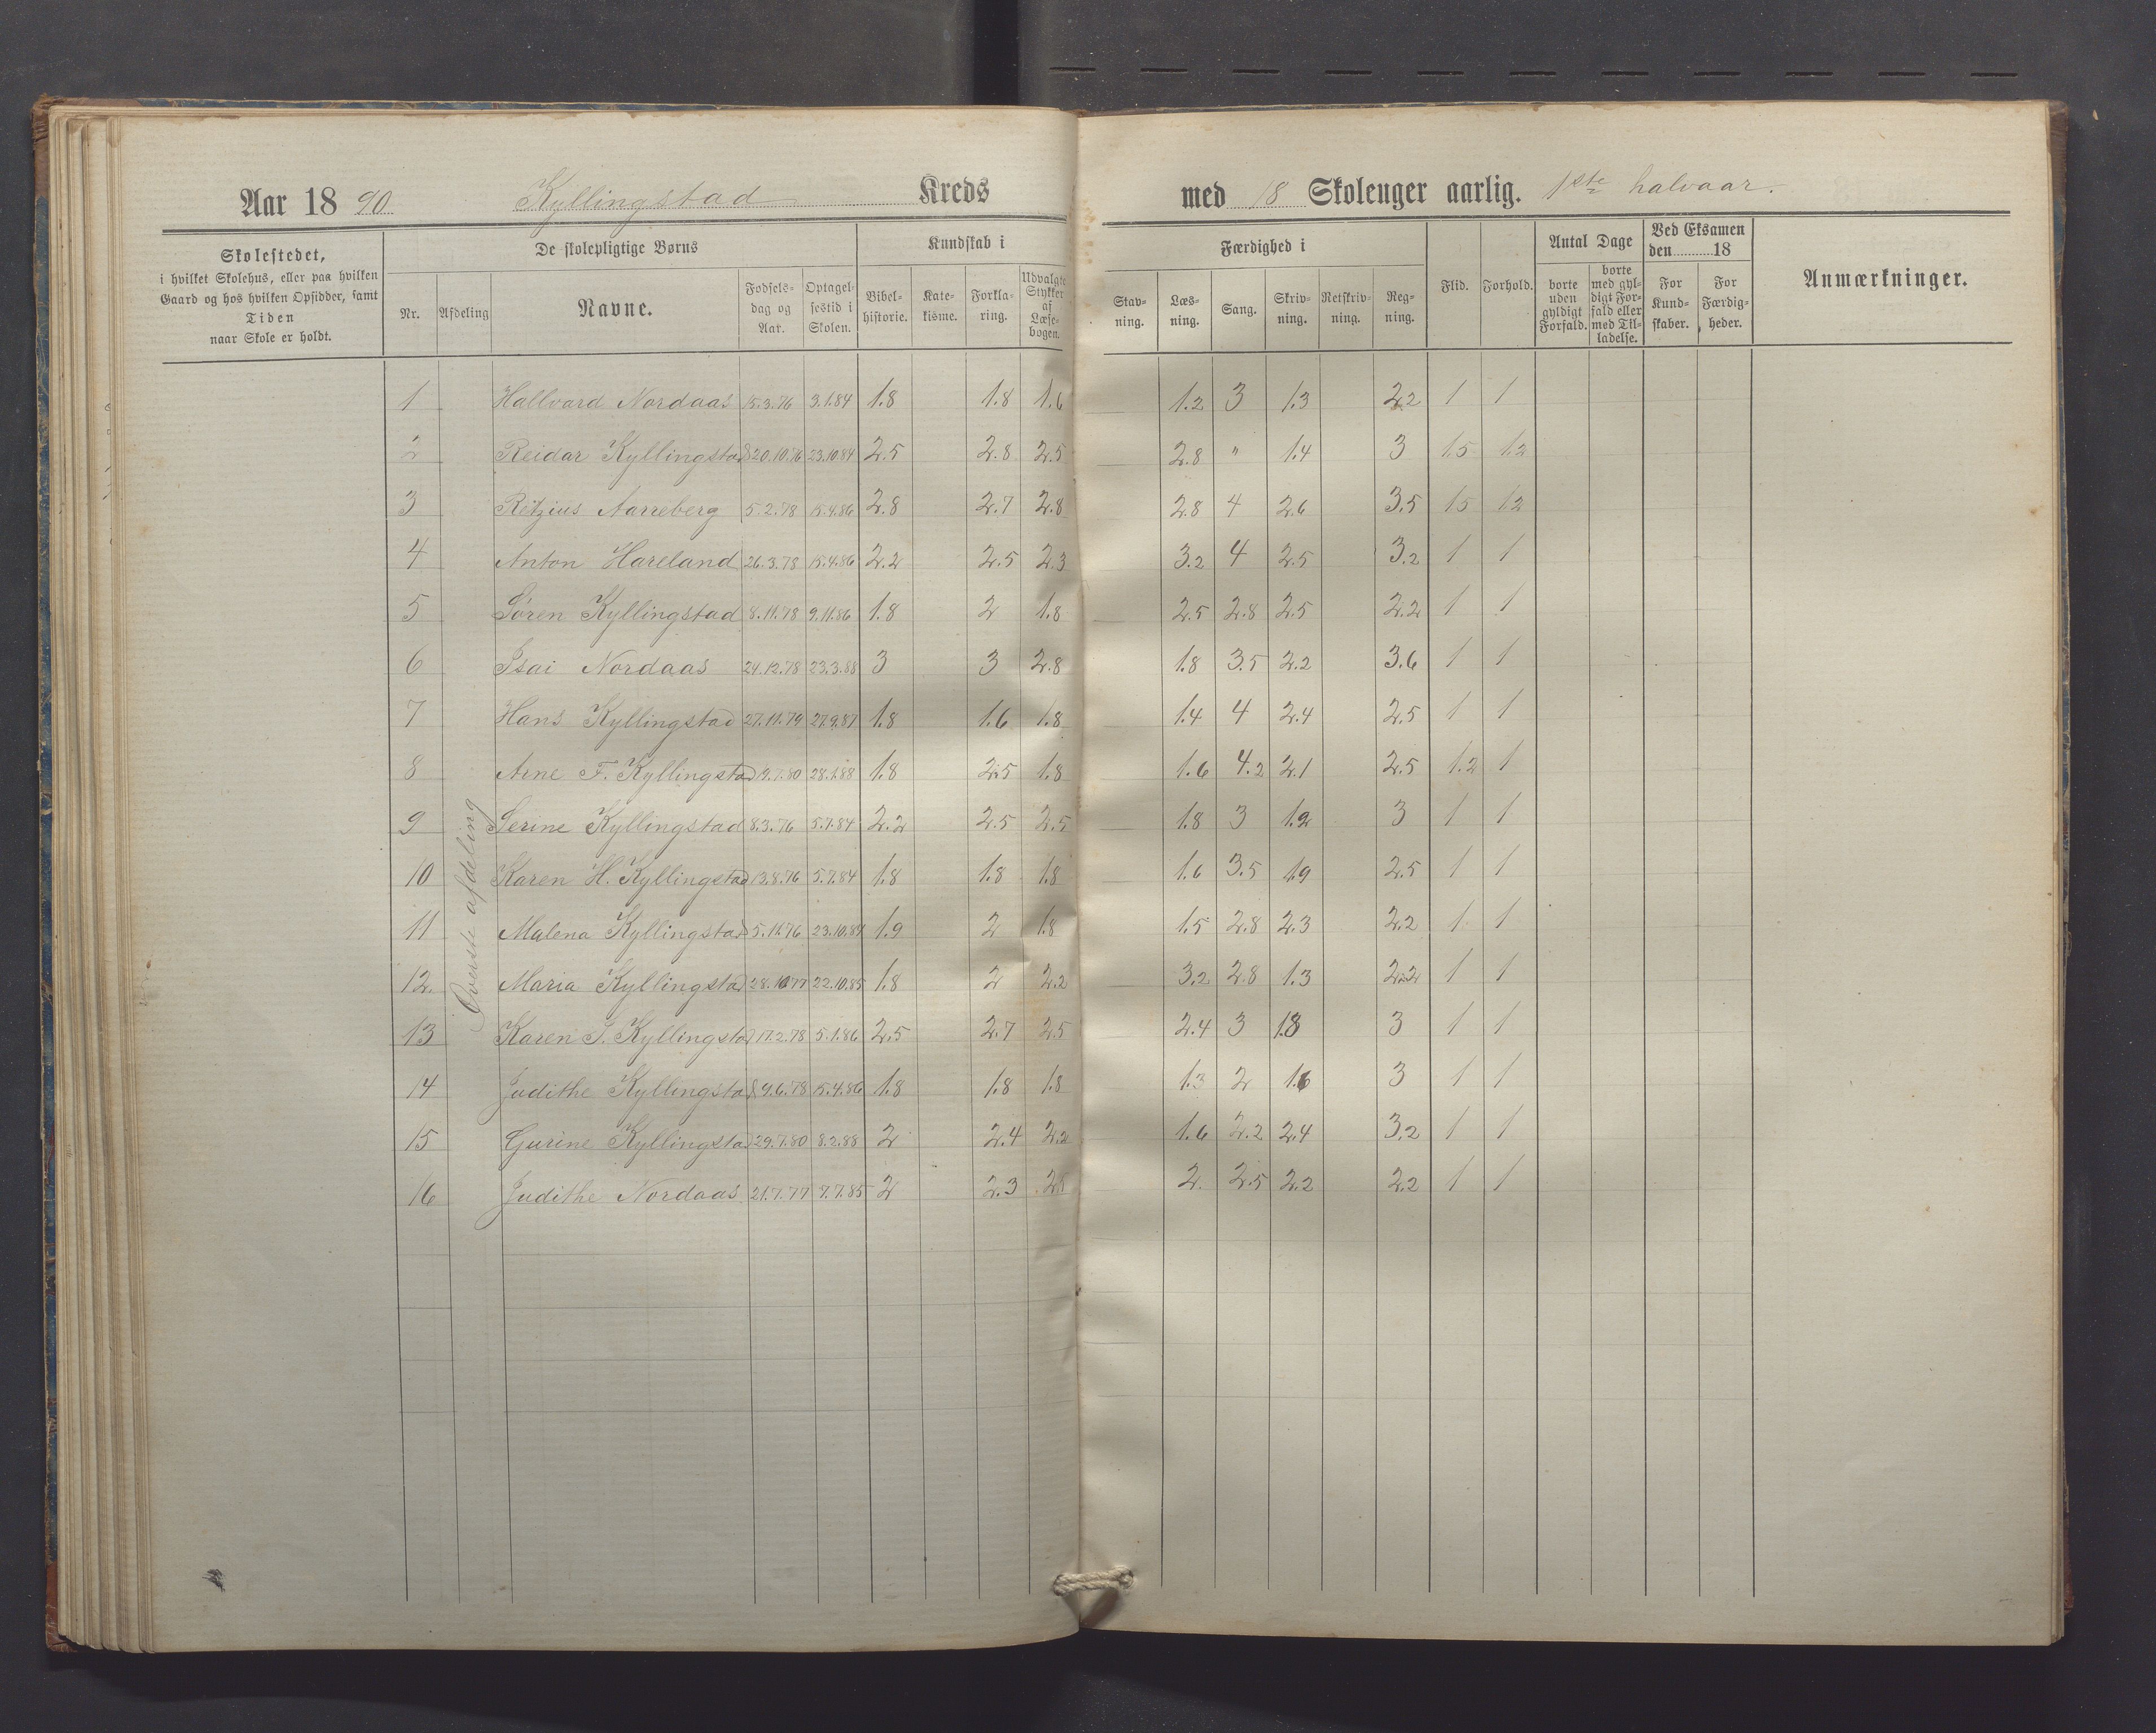 Aar 1890 Kyllingstad Kreds med 18 Skoleuger aarlig. 1ste halvaar.
Skolestedet,
i hvilket Skolehus, eller paa hvilken
Gaard og hos hvilken Opsidder, samt
Tiden
naar Skole er holdt.
De skolepligtige Børns
Nr. Afdeling Navne. Fødsels-dag og Aar. Optagel-sestid i Skolen.
Kundskab i
Bibel-historie. Kate-kisme. Forkla-ring. Udvalgte Stykker af Læse-bogen.
Færdighed i
Stav-ning. Læs-ning. Sang. Skriv-ning. Retskriv-ning. Reg-ning.
Flid. Forhold.
Antal Dage
borte uden gyldigt Forfald. borte med gyl-digt For-fald eller med Til-ladelse.
Ved Eksamen
den 18
For Kund-skaber. For Færdig-heder.
Anmærkninger.
Øverste afdeling
1 Hallvard Nordaas 15.3.76 3.1.84 1.8 1.8 1.6 1.2 3 1.3 2.2 1 1
2 Reidar Kyllingstad 20.10.76 23.10.84 2.5 2.8 2.5 2.8 " 1.4 3 1.5 1.2
3 Retzius Aarreberg 5.2.78 15.4.86 2.8 2.7 2.8 2.8 4 2.6 3.5 1.5 1.2
4 Anton Hareland 26.3.78 15.4.86 2.2 2.5 2.3 3.2 4 2.5 3.2 1 1
5 Sören Kyllingstad 8.11.78 9.11.86 1.8 2 1.8 2.5 2.8 2.5 2.2 1 1
6 Isai Nordaas 24.12.78 23.3.88 3 3 2.8 1.8 3.5 2.2 3.6 1 1
7 Hans Kyllingstad 27.11.79 27.9.87 1.8 1.6 1.8 1.4 4 2.4 2.5 1 1
8 Arne F. Kyllingstad 19.7.80 28.1.88 1.8 2.5 1.8 1.6 4.2 2.1 2.5 1.2 1
9 Serine Kyllingstad 8.3.76 5.7.84 2.2 2.5 2.5 1.8 3 1.2 3 1 1
10 Karen H. Kyllingstad 13.8.76 5.7.84 1.8 1.8 1.8 1.6 3.5 1.9 2.5 1 1
11 Malena Kyllingstad 5.11.76 23.10.84 1.9 2 1.8 1.5 2.8 2.3 2.2 1 1
12. Maria Kyllingstad 28.10.77 22.10.85 1.8 2 2.2 3.2 2.8 1.3 2.2 1 1
13 Karen S. Kyllingstad 17.2.78 5.1.86 2.5 2.7 2.5 2.4 3 1.8 3 1 1
14 Judithe Kyllingstad 9.6.78 15.4.86 1.8 1.8 1.8 1.3 2 1.6 3 1 1
15 Gurine Kyllingstad 29.7.80 8.2.88 2 2.4 2.2 1.6 2.2 2.4 3.2 1 1
16 Judithe Nordaas 21.7.77 7.7.85 2 2.3 2.5 2. 2.5 2.2 2.2 1 1